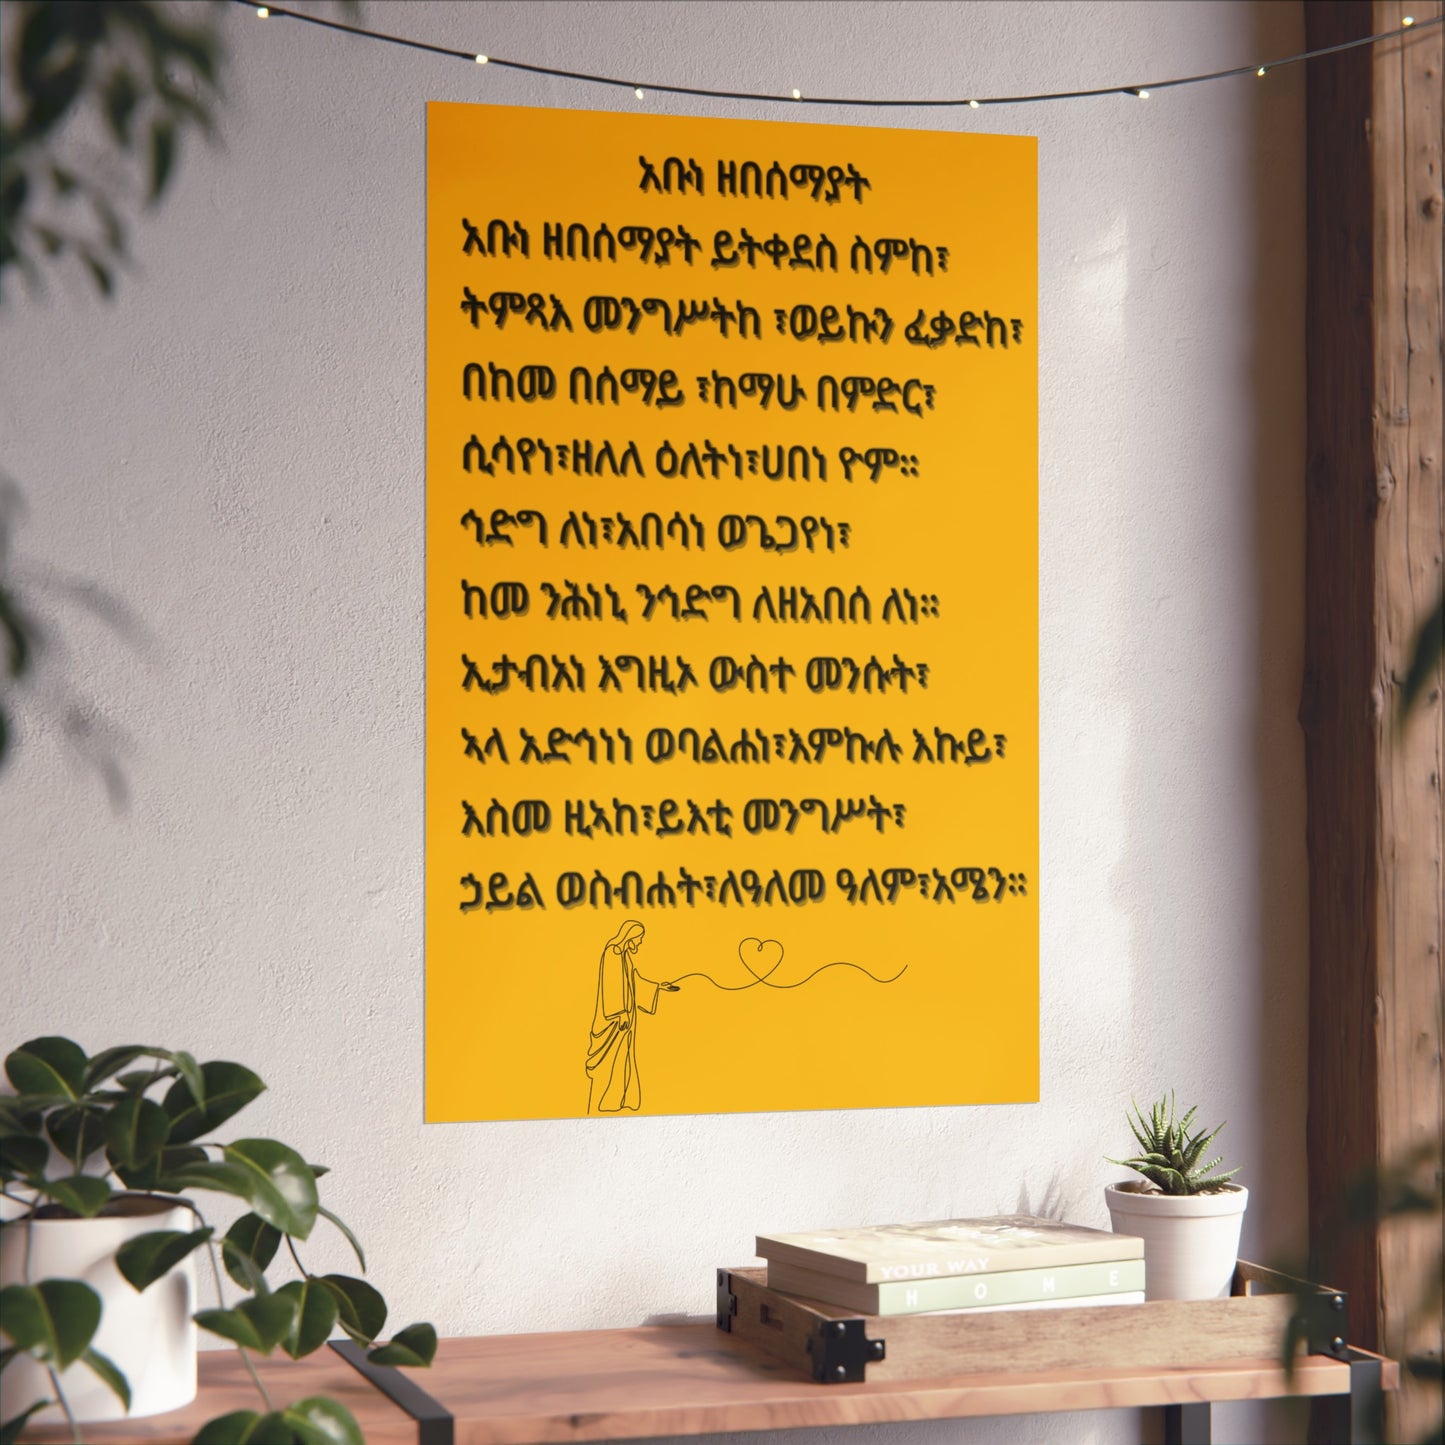 አቡነ ዘበሰማያት
አቡነ ዘበሰማያት ይትቀደስ ስምከ፣
ትምጻእ መንግሥትከ ፣ወይኩን ፈቃድከ፣
በከመ በሰማይ ፣ከማሁ በምድር፣
ሲሳየነ፣ዘለለ ዕለትነ፣ሀበነ ዮም።
ኅድግ ለነ፣አበሳነ ወጌጋየነ፣
ከመ ንሕነኒ ንኅድግ ለዘአበሰ ለነ።
ኢታብአነ እግዚኦ ውስተ መንሱት፣
ኣላ አድኅነነ ወባልሐነ፣እምኩሉ እኩይ፣
እስመ ዚኣከ፣ይእቲ መንግሥት፣
ኃይል ወስብሐት፣ለዓለመ ዓለም፣አሜን።
YOUR WAY
H O M E